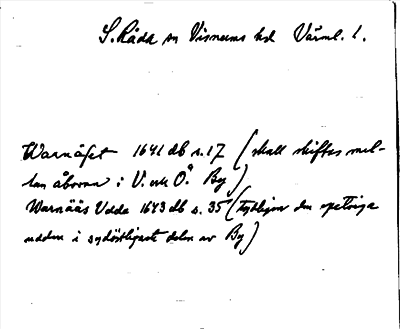 S. Råda sn Visnums hd Värml. l.
Warnäset 1641 db s. 17 (skall skiftas mel-
lan åborna i V. och Ö. By)
Warnääs Udda 1643 db s. 35 (tydligen den spetsiga
udden i sydöstligaste delen av By)